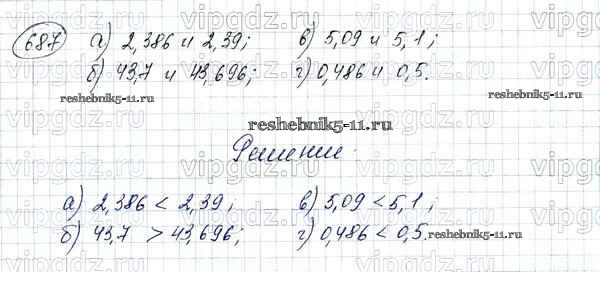 687 а) 2,386 и 2,39; в) 5,09 и 5,1;
б) 43,7 и 43,696; г) 0,486 и 0,5.
reshebnik5-11.ru reshebnik5-11.ru
reshebnik5-11.ru
Решение.
а) 2,386 < 2,39; в) 5,09 < 5,1;
б) 43,7 > 43,696; г) 0,486 < 0,5.
reshebnik5-11.ru
vipgdz.ru vipgdz.ru vipgdz.ru